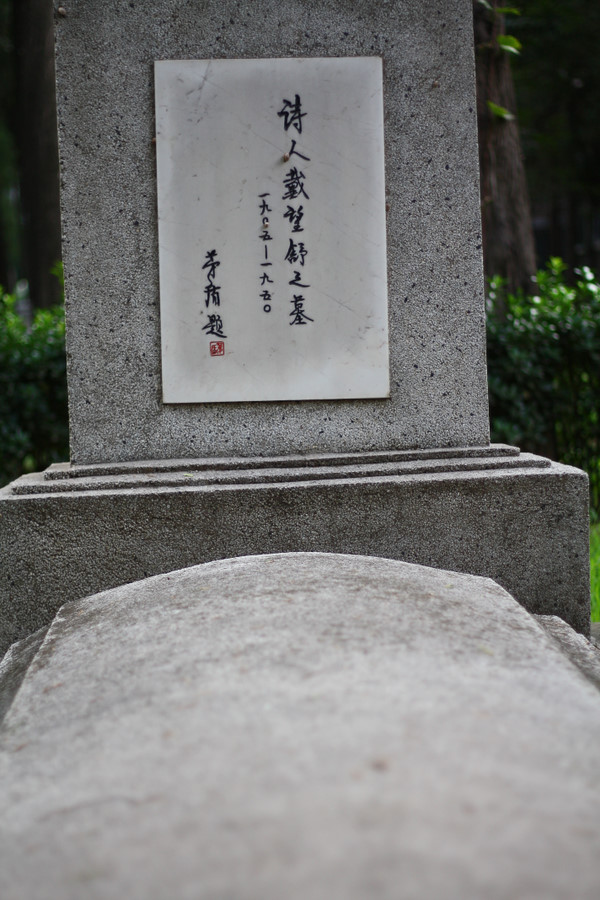 诗人戴望舒之墓
一九〇五—一九五〇
茅盾题